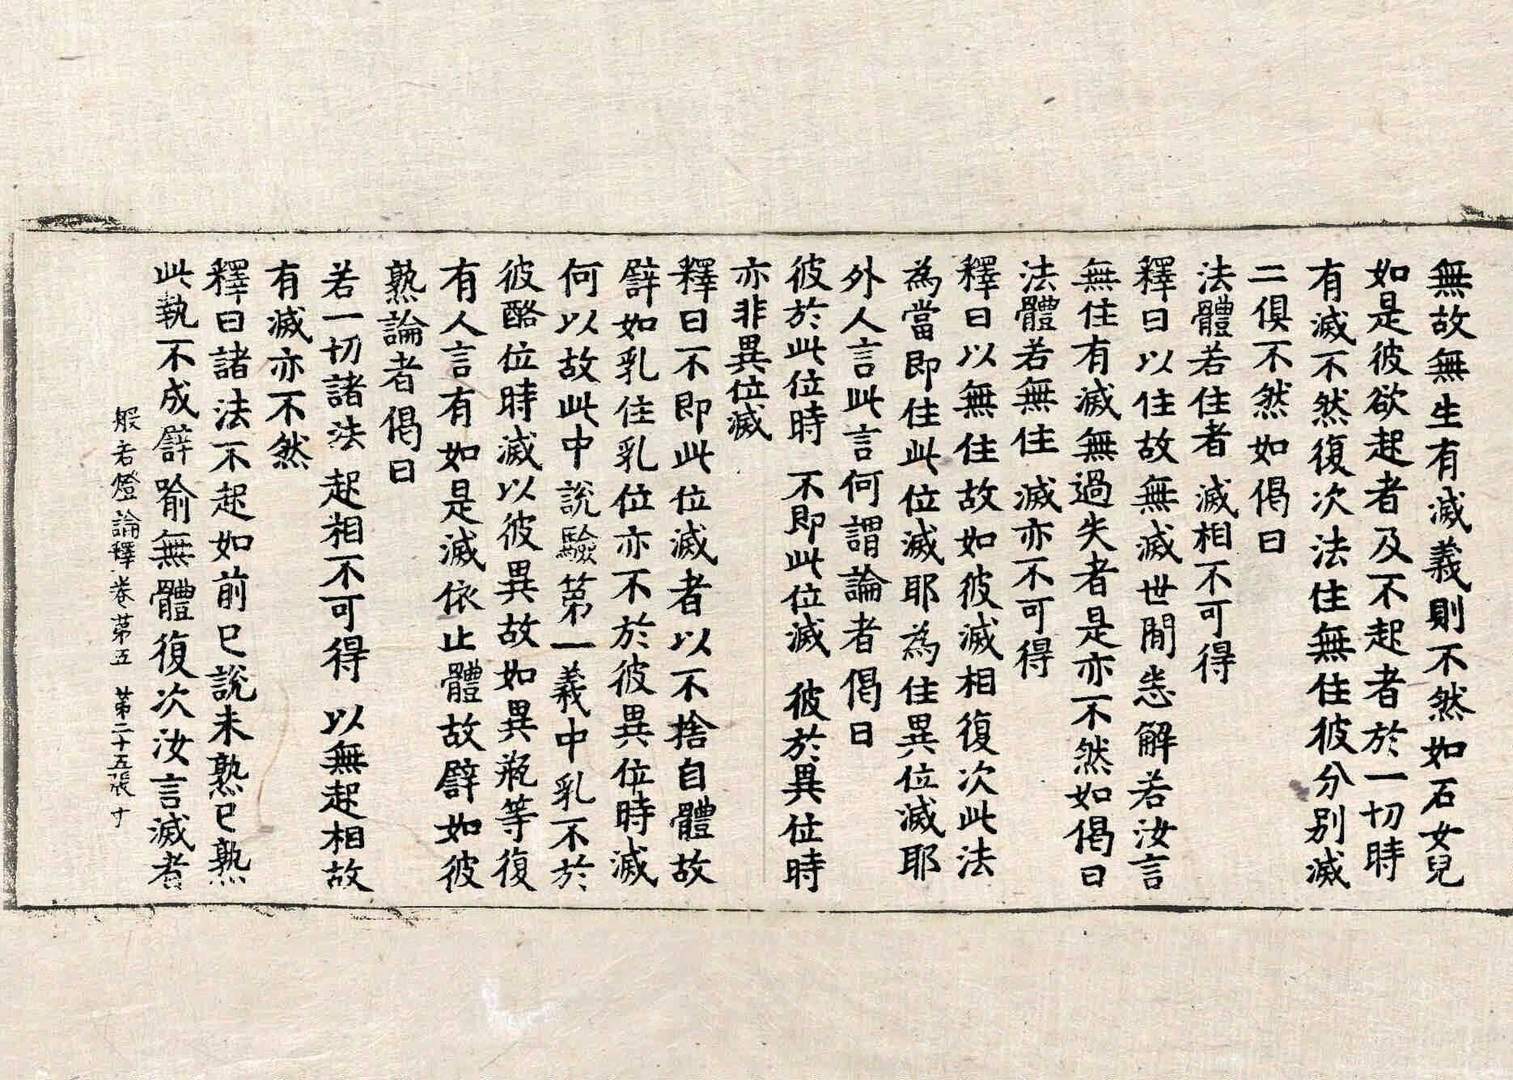 無故無生有滅義則不然如石女兒
如是彼欲起者及不起者於一切時
有滅不然復次法住無住彼分別滅
二俱不然如偈曰
法體若住者 滅相不可得
釋曰以住故無滅世閒悉解若汝言
無住有滅無過失者是亦不然如偈曰
法體若無住 滅亦不可得
釋曰以無住故如彼滅相復次此法
為當即住此位滅耶為住異位滅耶
外人言此言何謂論者偈曰
彼於此位時 不即此位滅 彼於異位時
亦非異位滅
釋曰不即此位滅者以不捨自體故
譬如乳住乳位亦不於彼異位時滅
何以故此中說驗第一義中乳不於
彼酪位時滅以彼異故如異瓶等復
有人言有如是滅依止體故譬如彼
熟論者偈曰
若一切諸法 起相不可得 以無起相故
有滅亦不然
釋曰諸法不起如前已說未熟已熟
此執不成譬喻無體復次汝言滅者
般若燈論釋卷第五 第二十五張 寸